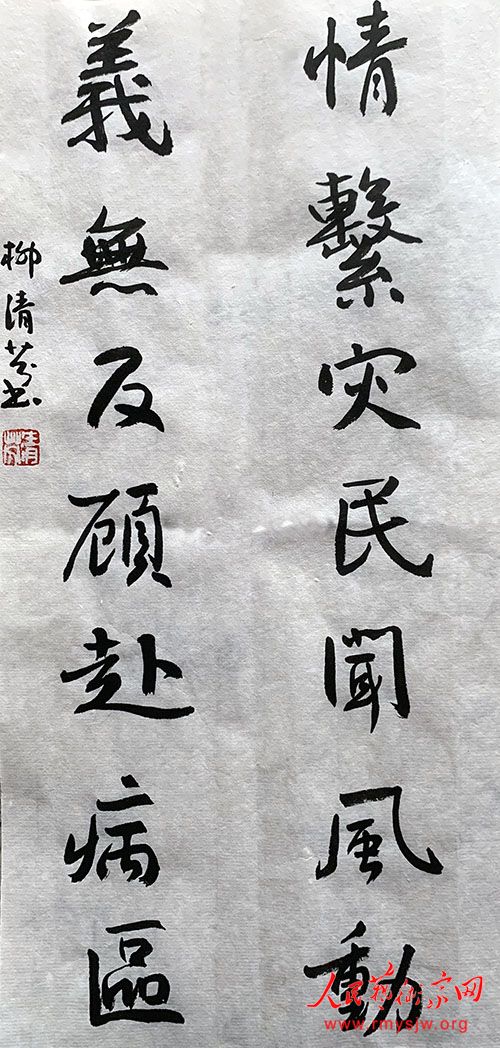 情繫灾民聞風動
義無反顧赴病區
柳清芬书
清芬
人民艺术家网
www.rmysjw.org